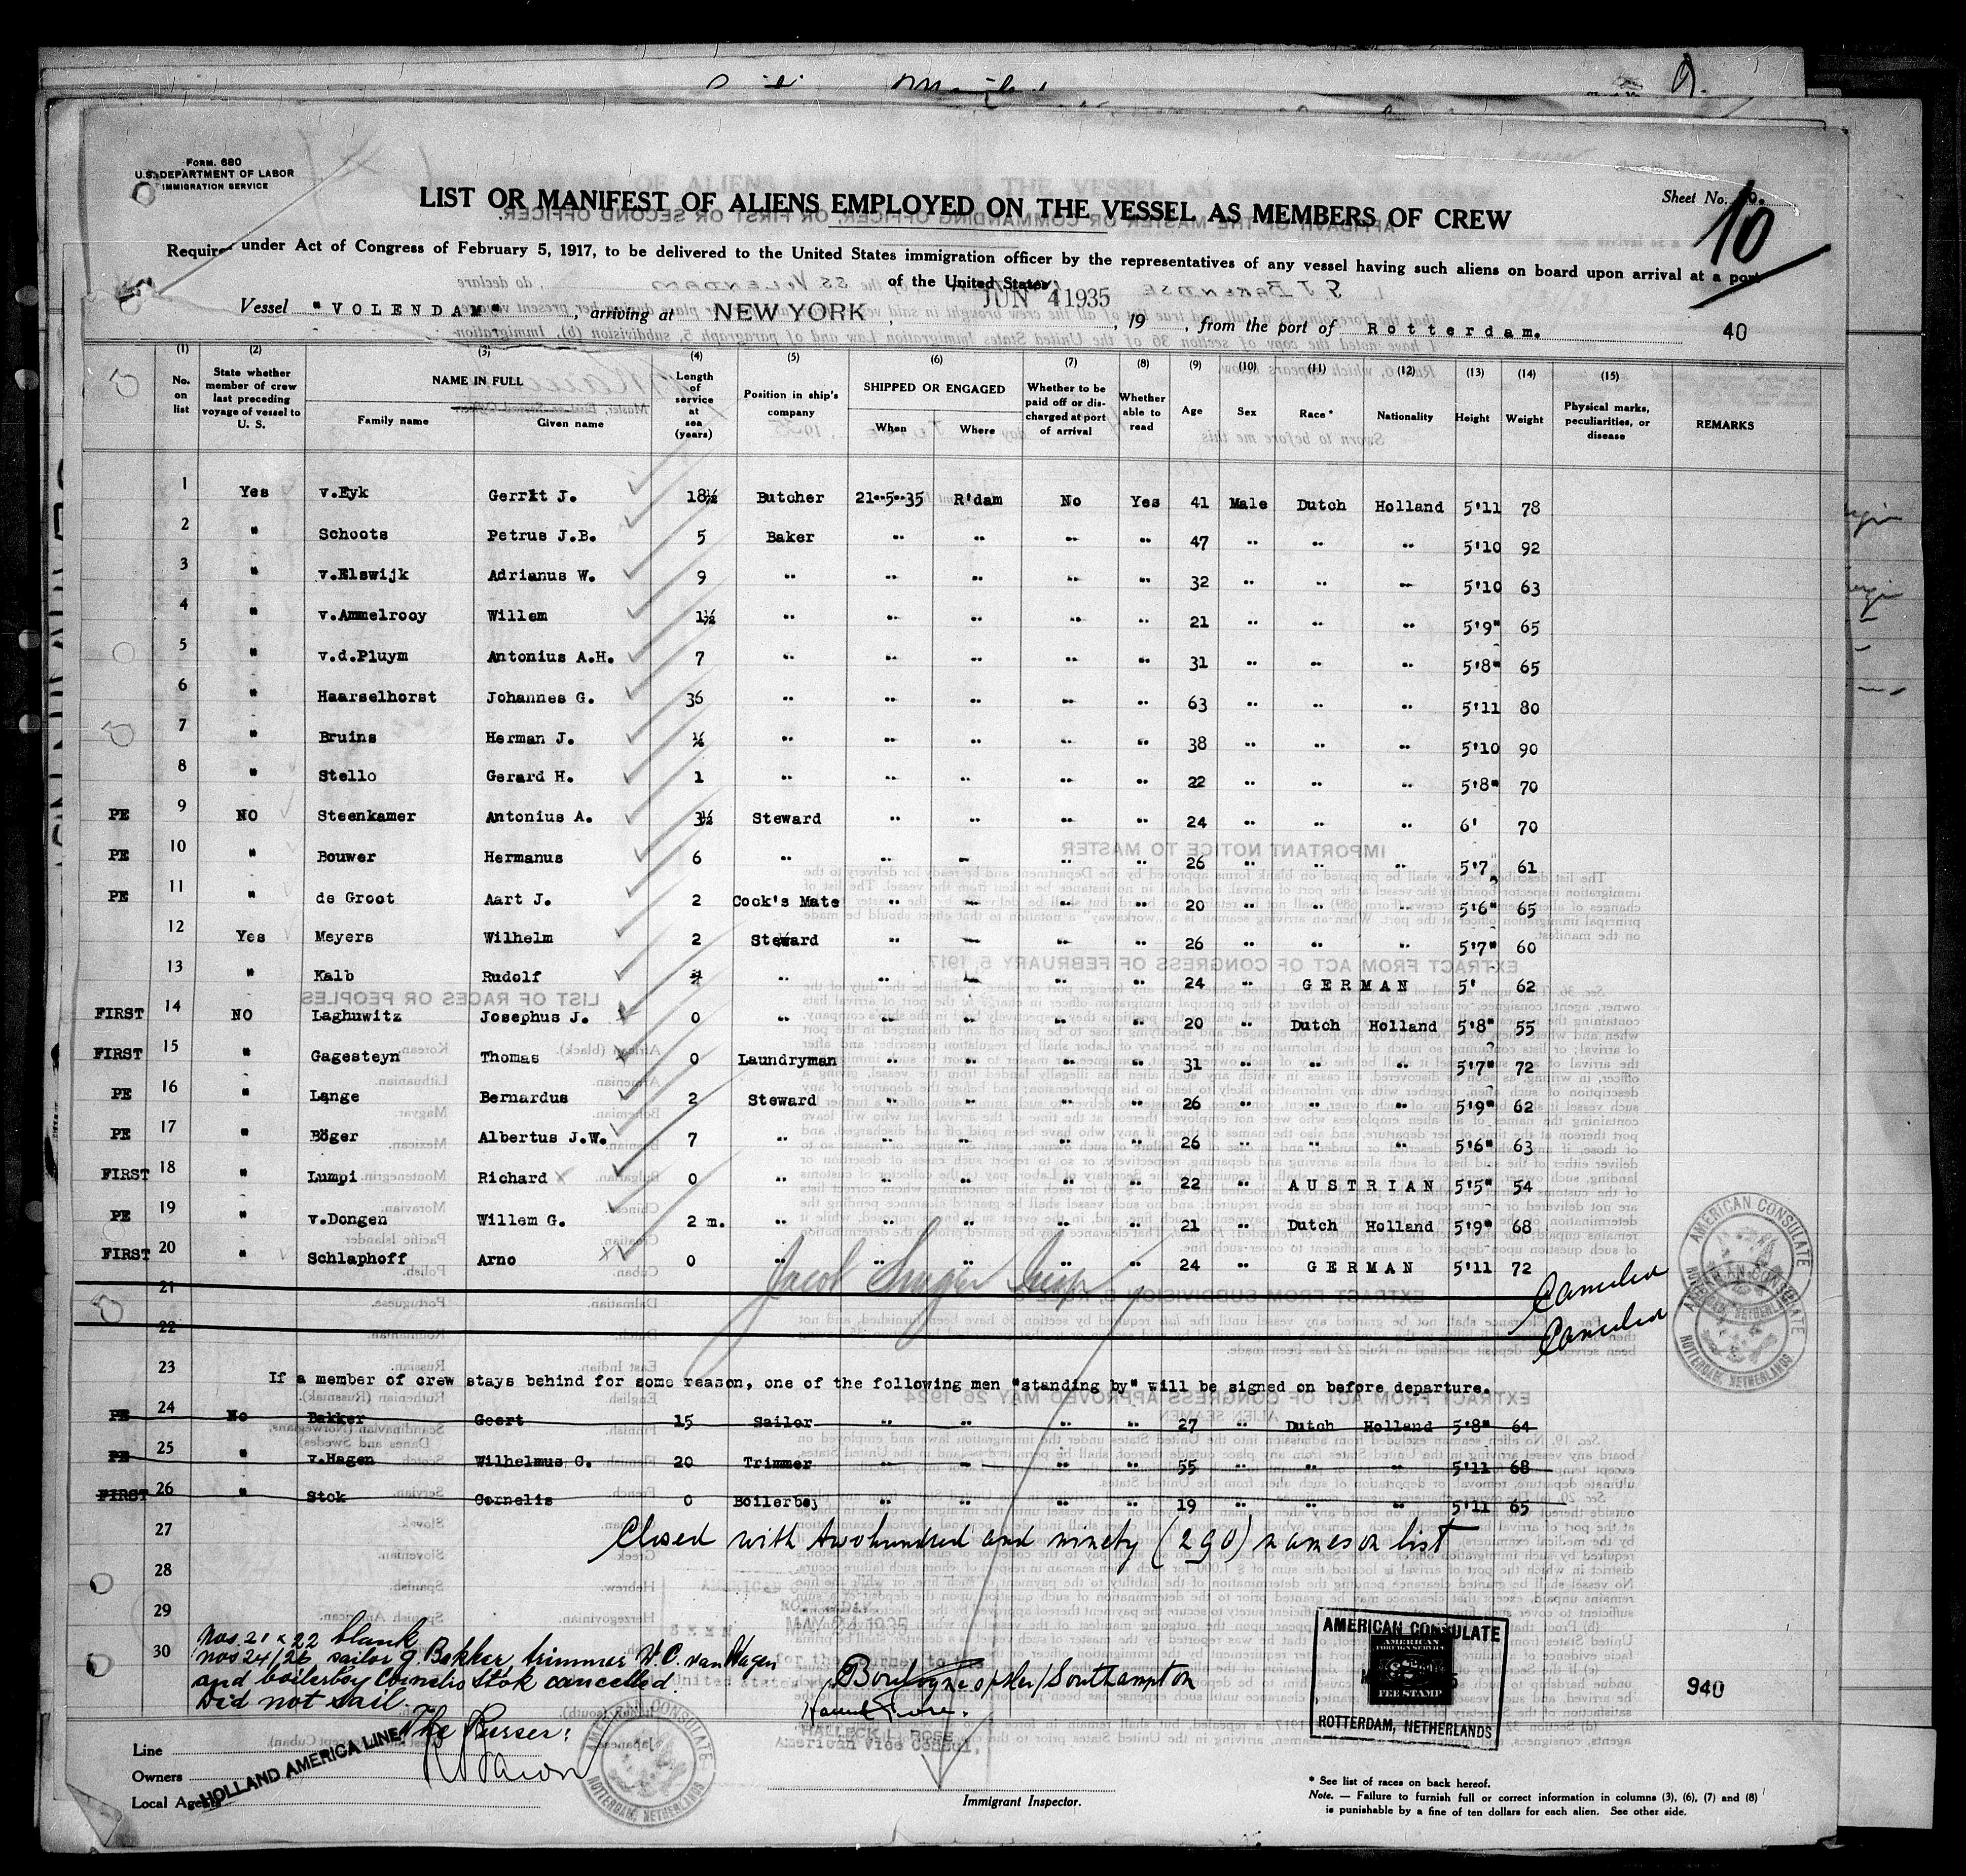 Form. 680
U.S. DEPARTMENT OF LABOR
IMMIGRATION SERVICE
Sheet No.
10
LIST OR MANIFEST OF ALIENS EMPLOYED ON THE VESSEL AS MEMBERS OF CREW
Required under Act of Congress of February 5, 1917, to be delivered to the United States immigration officer by the representatives of any vessel having such aliens on board upon arrival at a port
of the United States
Vessel "VOLENDAM" arriving at NEW YORK, JUN 4 1935, 19 , from the port of Rotterdam.
40
(1) (2) (3) (4) (5) (6) (7) (8) (9) (10) (11) (12) (13) (14) (15)
No. on list State whether member of crew last preceding voyage of vessel to U. S. NAME IN FULL Family name Given name Length of service at sea (years) Position in ship's company SHIPPED OR ENGAGED When Where Whether to be paid off or discharged at port of arrival Whether able to read Age Sex Race* Nationality Height Weight Physical marks, peculiarities, or disease REMARKS
1 Yes v.Eyk Gerrit J. 18½ Butcher 21--5--35 R'dam No Yes 41 Male Dutch Holland 5'11 78
2 " Schoots Petrus J.B. 5 Baker " " " " 47 " " " 5'10 92
3 " v.Elswijk Adrianus W. 9 " " " " " 32 " " " 5'10 63
4 " v.Ammelrooy Willem 1½ " " " " " 21 " " " 5'9" 65
5 " v.d.Pluym Antonius A.H. 7 " " " " " 31 " " " 5'8" 65
6 " Haarselhorst Johannes G. 36 " " " " " 63 " " " 5'11 80
7 " Bruins Herman J. ½ " " " " " 38 " " " 5'10 90
8 " Stello Gerard H. 1 " " " " " 22 " " " 5'8" 70
PE 9 NO Steenkamer Antonius A. 3½ Steward " " " " 24 " " " 6' 70
PE 10 " Bouwer Hermanus 6 " " " " " 26 " " " 5'7" 61
PE 11 " de Groot Aart J. 2 Cook's Mate " " " " 20 " " " 5'6" 65
12 Yes Meyers Wilhelm 2 Steward " " " " 26 " " " 5'7" 60
13 " Kalb Rudolf " " " " " 24 " GERMAN 5' 62
FIRST 14 NO Laghuwitz Josephus J. 0 " " " " " 20 " Dutch Holland 5'8" 55
FIRST 15 " Gagesteyn Thomas 0 Laundryman " " " " 31 " " " 5'7" 72
PE 16 " Lange Bernardus 2 Steward " " " " 26 " " " 5'9" 62
PE 17 " Böger Albertus J.W. 7 " " " " " 26 " " " 5'6" 63
FIRST 18 " Lumpi Richard 0 " " " " " 22 " AUSTRIAN 5'5" 54
PE 19 " v.Dongen Willem G. 2 m. " " " " " 21 " Dutch Holland 5'9" 68
FIRST 20 " Schlaphoff Arno 0 " " " " " 24 " GERMAN 5'11 72
Jacob Singer Insp
21
22
23 If a member of crew stays behind for some reason, one of the following men "standing by" will be signed on before departure.
PE 24 No Bakker Geert 15 Sailor " " " " 27 " Dutch Holland 5'8" 64
PE 25 " v.Hagen Wilhelmus C. 20 Trimmer " " " " 55 " " " 5'11 68
FIRST 26 " Stok Cornelis 0 Boilerboy " " " " 19 " " " 5'11 65
27 Closed with twohundred and ninety (290) names on list
28
29
MAY 24 1935
30 Nos. 21 & 22 blank
nos 24/26 sailor G. Bakker trimmer W.C. van Hagen
and boilerboy Cornelis Stok cancelled.
Did not sail.
The Purser:
Boulogne s/Mer/Southampton
HALLECK L. ROSE
American Vice Consul,
AMERICAN CONSULATE
AMERICAN FOREIGN SERVICE
FEE STAMP
ROTTERDAM, NETHERLANDS
940
AMERICAN CONSULATE
ROTTERDAM, NETHERLANDS
AMERICAN CONSULATE
ROTTERDAM, NETHERLANDS
AMERICAN CONSULATE
ROTTERDAM, NETHERLANDS
Line
Owners
Local Agents
HOLLAND AMERICA LINE
Immigrant Inspector.
* See list of races on back hereof.
Note. — Failure to furnish full or correct information in columns (3), (6), (7) and (8)
is punishable by a fine of ten dollars for each alien. See other side.